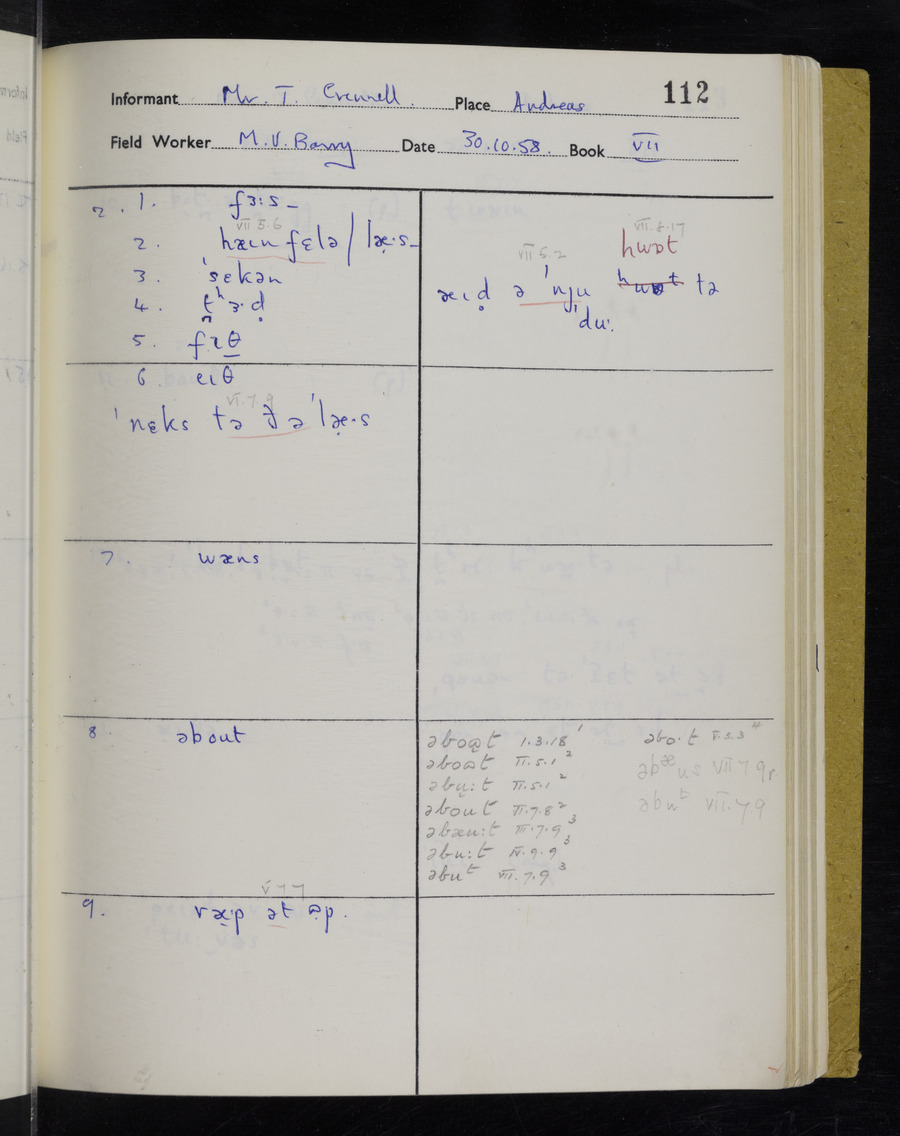 Informant Mr. T. Crennell. Place Andreas 112
Field Worker M.V. Barry Date 30.10.58. Book VII
2. 1. fɜ:s –
VII 5.6
2. hæɪn fɛlə / læ·s –
3. ˈsɛkən
4. t̪ʰɜ·ḍ
5. fɪθ
VII.8.17
hwɒt
VII 5.2
æɪḍ ə ˈnju hwɒt tə
ˈdu·
6. eɪθ
VI.7.9
ˈnɛks tə ðə ˈlæ·s
7. wæns
8. əbout
əboʊt 1.3.18 ¹
əboʊt II.5.1 ²
əbu:t II.5.1 ²
əbout II.7.8 ²
əbæu:t III.7.9 ³
əbu:t IV.9.9 ³
əbut VII.7.9 ³
əbo·t V.5.3 ⁴
əbæus VII 7 9
əbut VII.7.9
V 7 7
9. ræ·p ət ʊp.